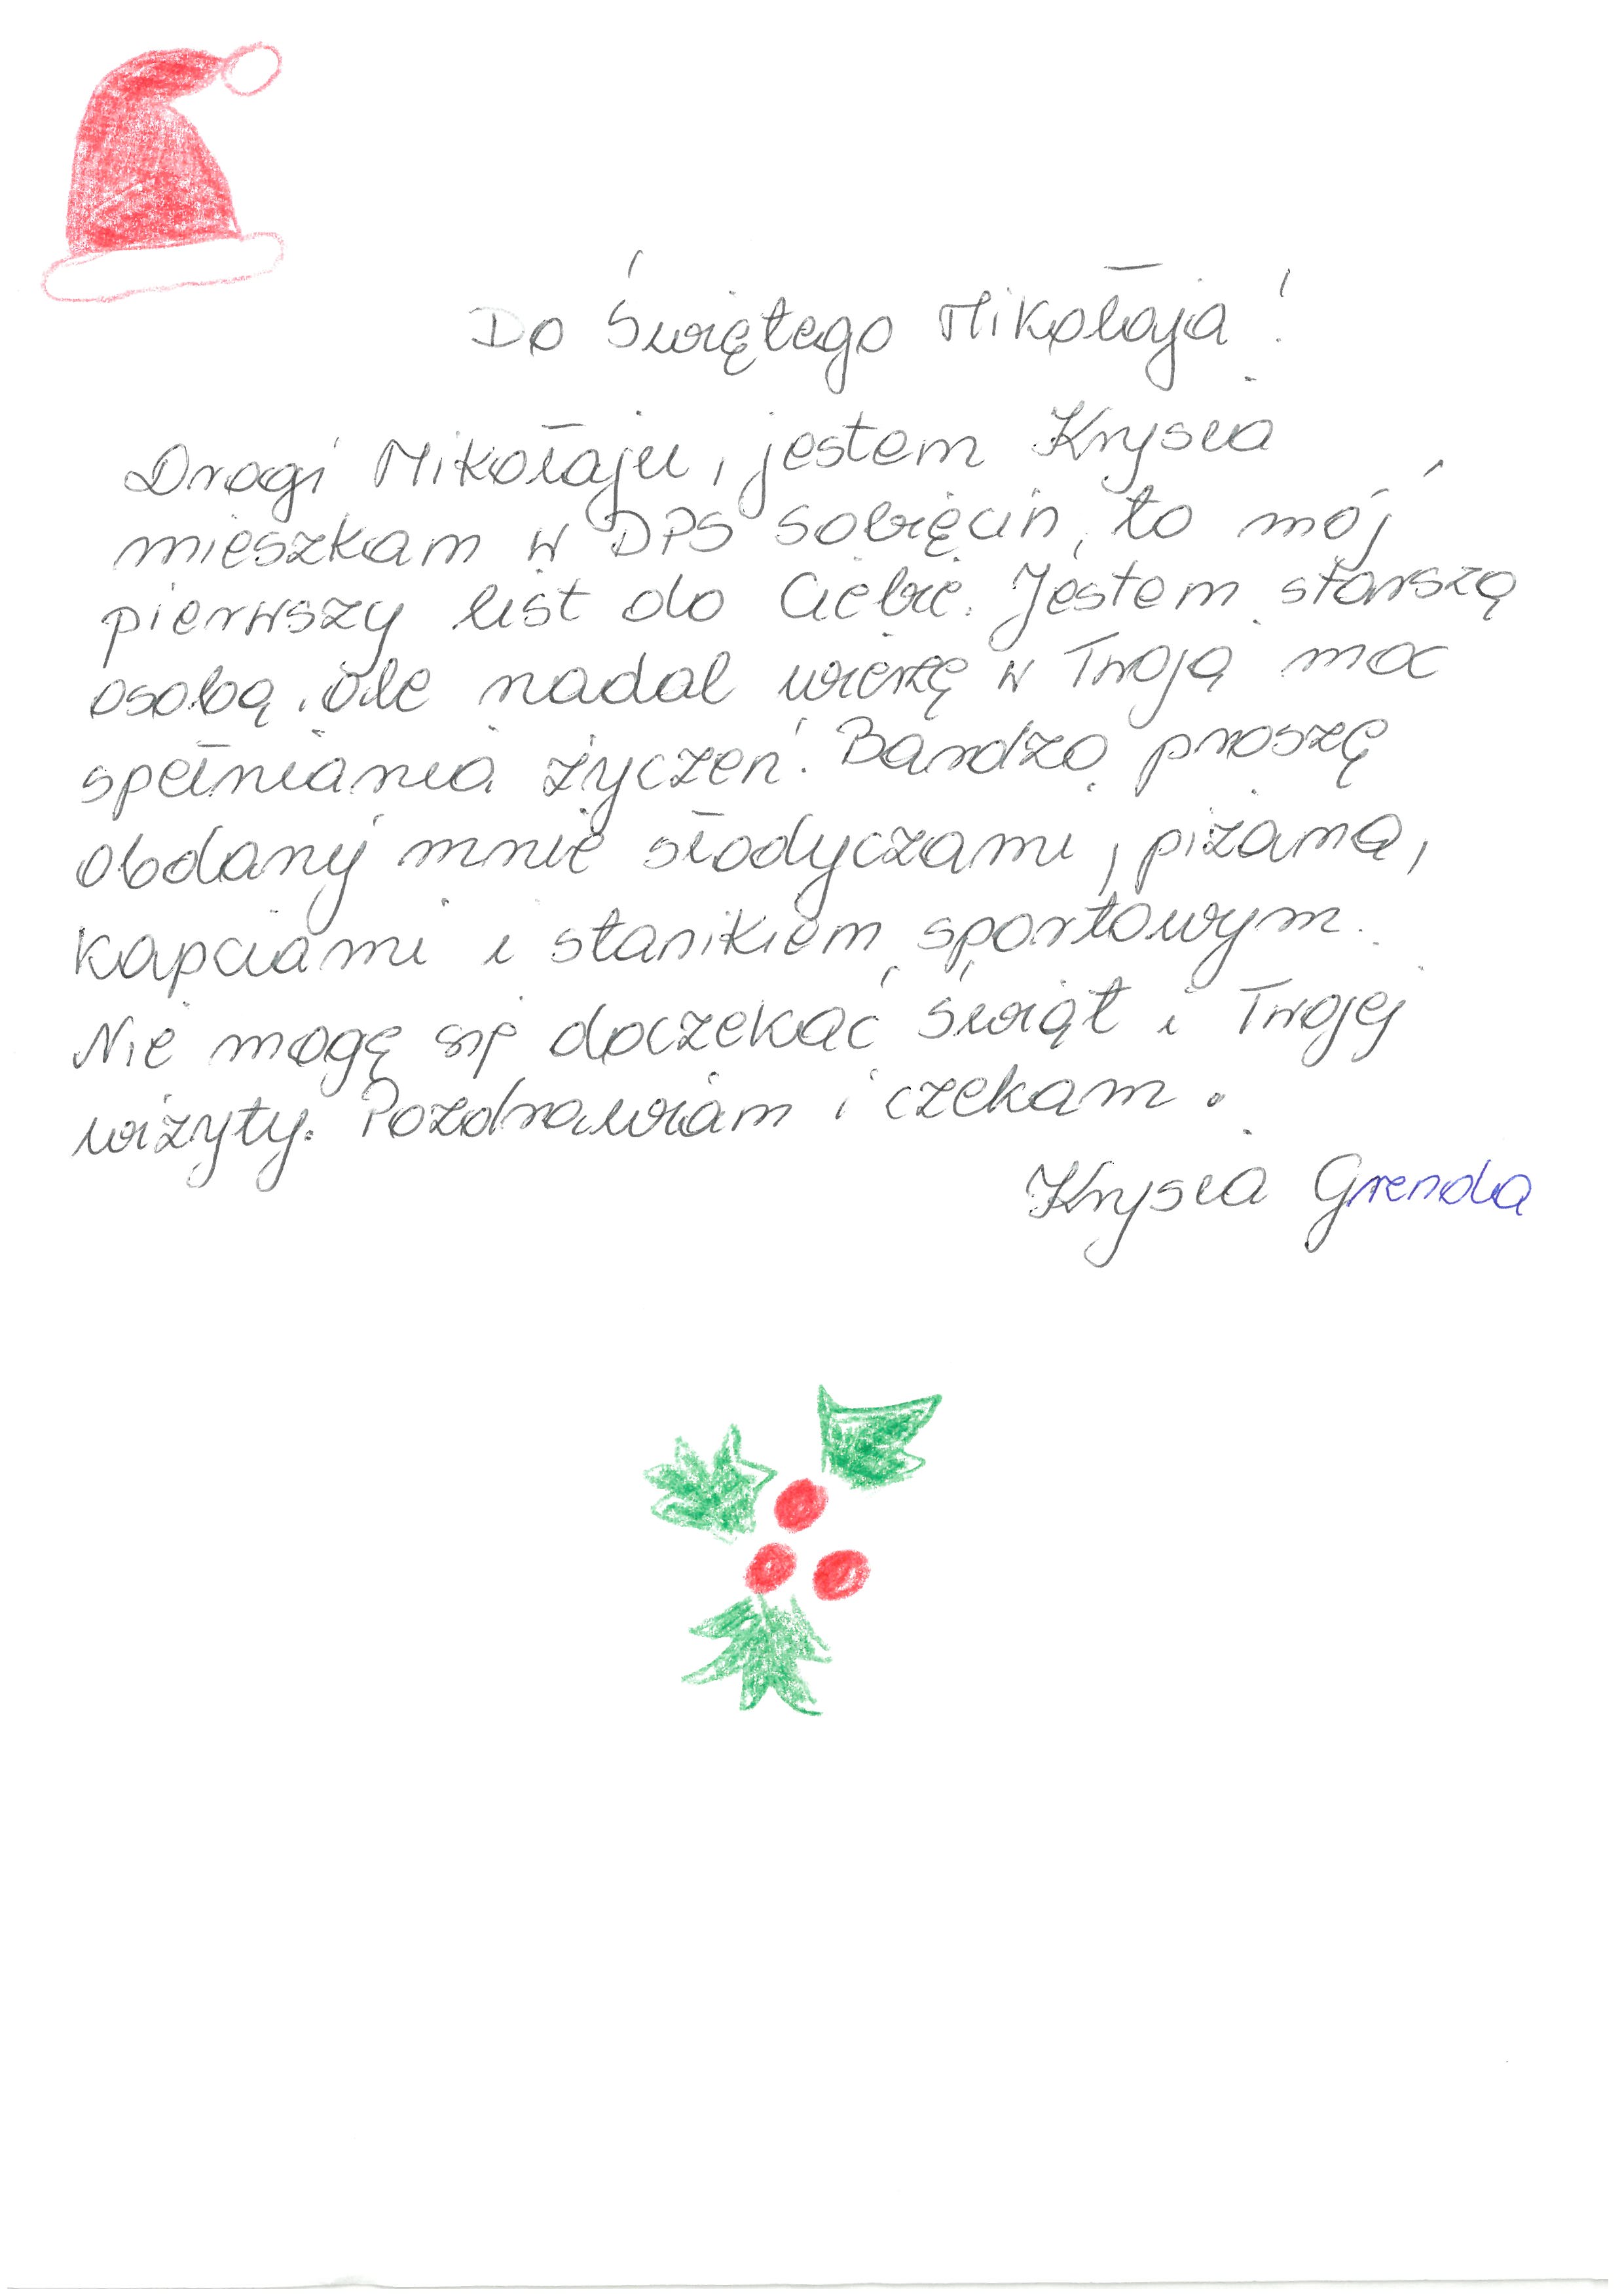 Do Świętego Mikołaja!
Drogi Mikołaju, jestem Krysia
mieszkam w DPS Sobięcin, to mój
pierwszy list do Ciebie. Jestem starszą
osobą, ale nadal wierzę w Twoją moc
spełniania życzeń. Bardzo proszę
obdaruj mnie słodyczami, piżamą,
kapciami i stanikiem sportowym.
Nie mogę się doczekać Świąt i Twojej
wizyty. Pozdrawiam i czekam.
Krysia Grenda